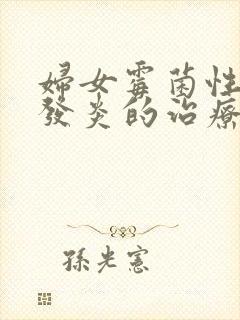 婦女霉菌性
發炎的治療
孫光憲